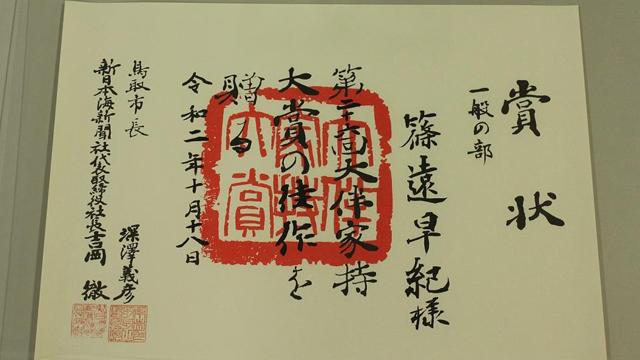 賞状
一般の部
篠遠早紀様
第二十六回大伴家持
大賞の佳作を
贈る
令和二年十月十八日
鳥取市長
深澤義彦
新日本海新聞社代表取締役社長吉岡徹
大伴家持大賞